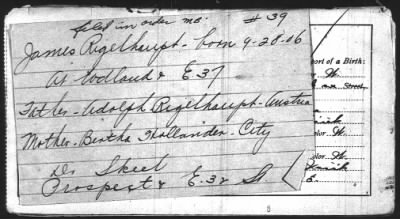 filed in order no. #39
James Rigelhaupt - born 9-28-06
At Woodland & E 37
Father - Adolph Rigelhaupt - Austria
Mother - Bertha Hollander - City
Dr Skeel
Prospect & E. 32 St
port of a Birth:
W.
Street
W.
W.
8